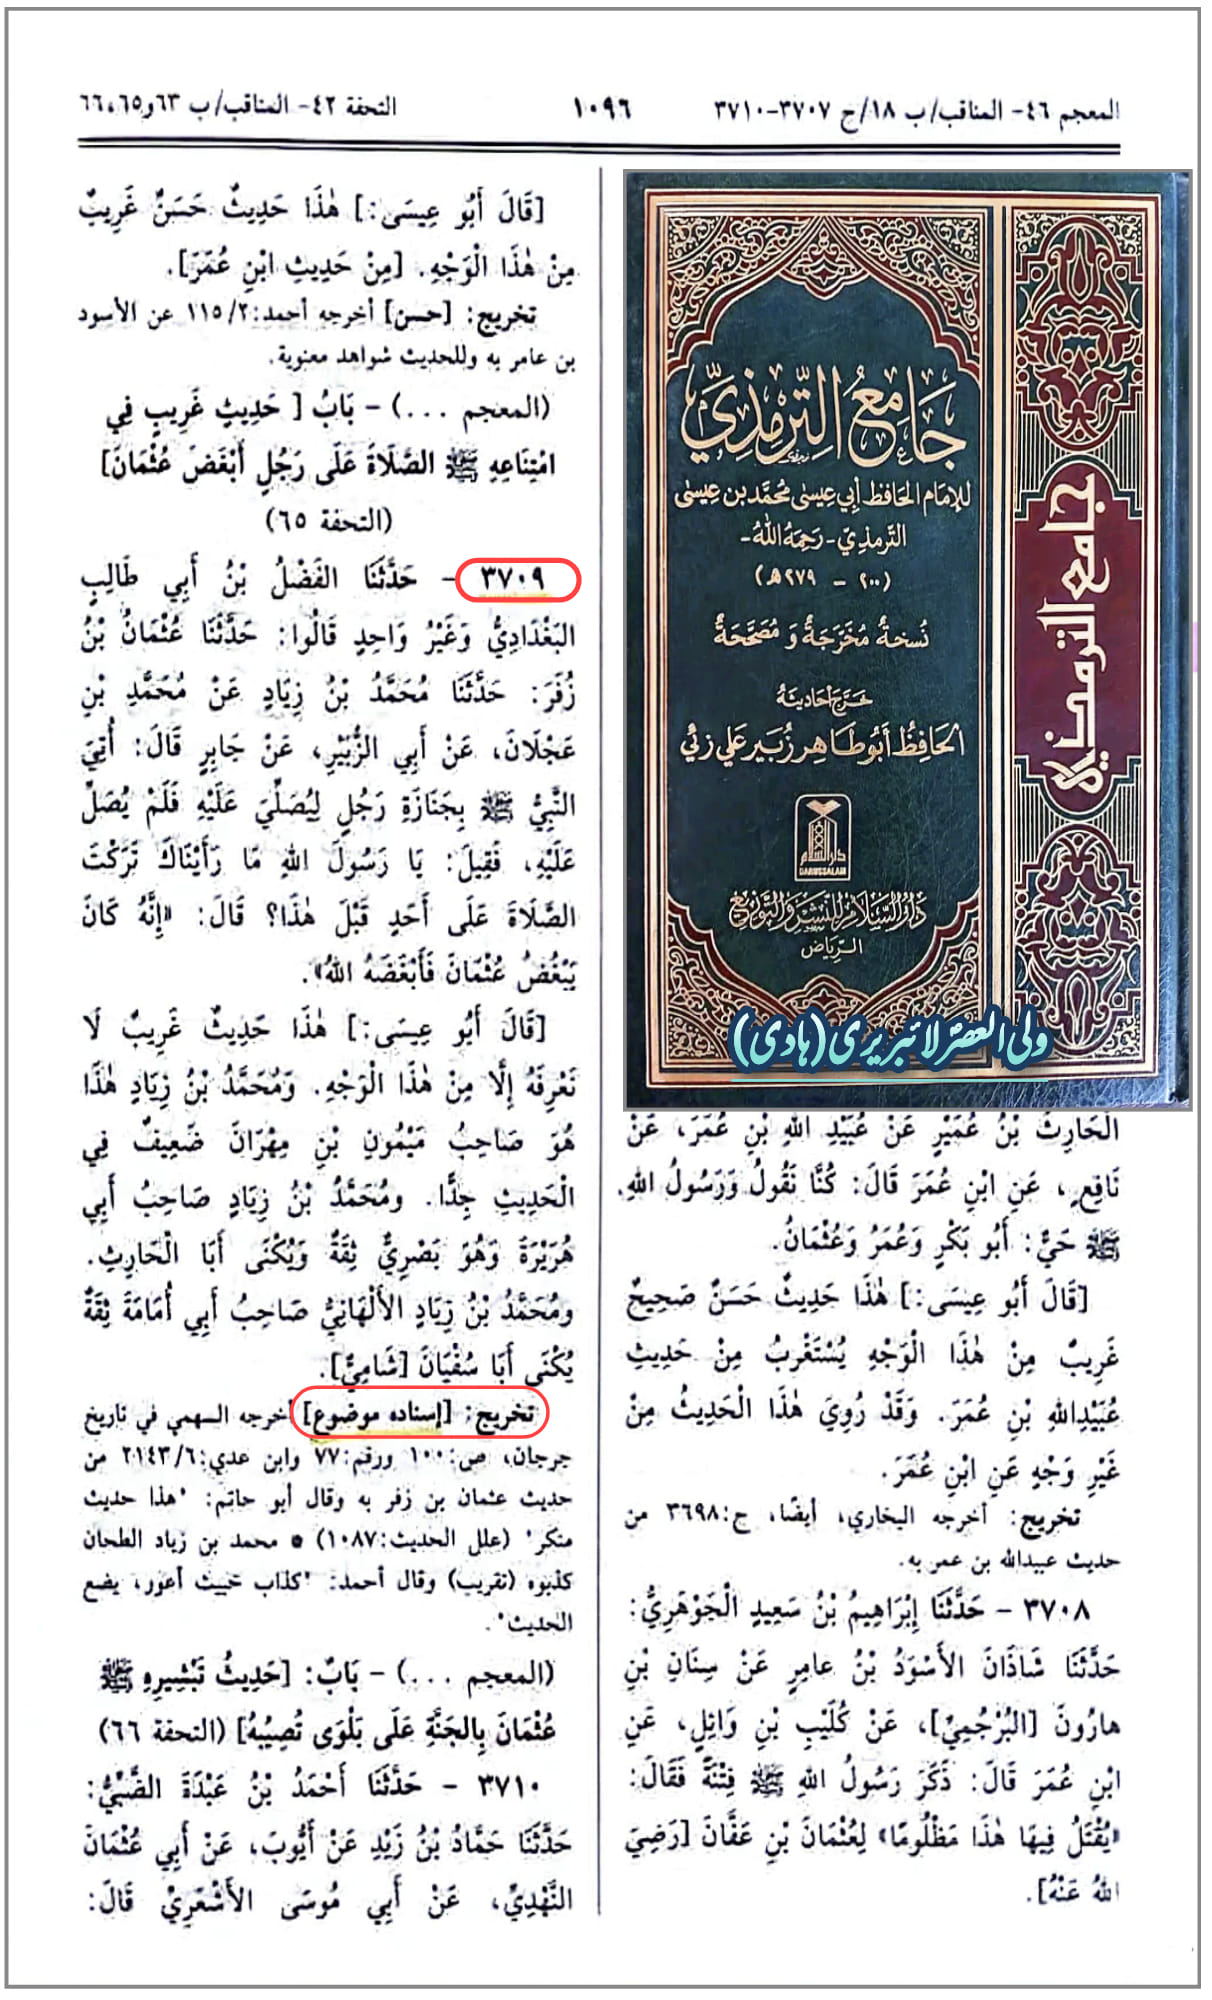 المعجم ٤٦- المناقب/ ب ١٨/ح ٣٧٠٧-٣٧١٠
١٠٩٦
التحفة ٤٢- المناقب/ ب ٦٣و٦٥،٦٦
جَامِعُ التِّرْمِذِيِّ
للإمَام الحَافظ أبي عِيسىٰ محُمَّد بن عِيسىٰ
الترمذيّ - رَحِمَهُ اللهُ -
(٢٠٠ - ٢٧٩ هـ)
نُسخةٌ مُخَرَّجَةٌ وَ مُصَحَّحَةٌ
خرّج أحاديثه
الحَافِظُ أبُو طَاهِر زُبَير عَلي زئي
دار السلام
DARUSSALAM
دارُ السَّلام للنشر والتوزيع
الرياض
جامع الترمذي
ولی العصر لائبریری (ہادی)
الْحَارِثُ بْنُ عُمَيْرٍ عَنْ عُبَيْدِ اللهِ بْنِ عُمَرَ، عَنْ
نَافِعٍ، عَنِ ابْنِ عُمَرَ قَالَ: كُنَّا نَقُولُ وَرَسُولُ اللهِ
ﷺ حَيٌّ: أَبُو بَكْرٍ وَعُمَرُ وَعُثْمَانُ.
[قَالَ أَبُو عِيسَى:] هٰذَا حَدِيثٌ حَسَنٌ صَحِيحٌ
غَرِيبٌ مِنْ هٰذَا الْوَجْهِ يُسْتَغْرَبُ مِنْ حَدِيثِ
عُبَيْدِاللهِ بْنِ عُمَرَ. وَقَدْ رُوِيَ هٰذَا الْحَدِيثُ مِنْ
غَيْرِ وَجْهٍ عَنِ ابْنِ عُمَرَ.
تخريج: أخرجه البخاري، أيضًا، ح:٣٦٩٨ من
حديث عبيدالله بن عمر به.
٣٧٠٨ - حَدَّثَنَا إِبْرَاهِيمُ بْنُ سَعِيدٍ الْجَوْهَرِيُّ:
حَدَّثَنَا شَاذَانُ الأَسْوَدُ بْنُ عَامِرٍ عَنْ سِنَانِ بْنِ
هارُونَ [البُرْجُمِيِّ]، عَنْ كُلَيْبِ بْنِ وَائِلٍ، عَنِ
ابْنِ عُمَرَ قَالَ: ذَكَرَ رَسُولُ اللهِ ﷺ فِتْنَةً فَقَالَ:
«يُقْتَلُ فِيهَا هٰذَا مَظْلُومًا» لِعُثْمَانَ بْنِ عَفَّانَ [رَضِيَ
اللهُ عَنْهُ].
[قَالَ أَبُو عِيسَى:] هٰذَا حَدِيثٌ حَسَنٌ غَرِيبٌ
مِنْ هٰذَا الْوَجْهِ. [مِنْ حَدِيثِ ابْنِ عُمَرَ].
تخريج: [حسن] أخرجه أحمد:٢/ ١١٥ عن الأسود
بن عامر به وللحديث شواهد معنوية.
(المعجم ...) - بَابُ [ حَدِيثٍ غَرِيبٍ فِي
امْتِنَاعِهِ ﷺ الصَّلَاةَ عَلَى رَجُلٍ أَبْغَضَ عُثْمَانَ]
(التحفة ٦٥)
٣٧٠٩ - حَدَّثَنَا الفَضْلُ بْنُ أَبِي طَالِبٍ
البَغْدَادِيُّ وَغَيْرُ وَاحِدٍ قَالُوا: حَدَّثَنَا عُثْمَانُ بْنُ
زُفَرَ: حَدَّثَنَا مُحَمَّدُ بْنُ زِيَادٍ عَنْ مُحَمَّدِ بْنِ
عَجْلَانَ، عَنْ أَبِي الزُّبَيْرِ، عَنْ جَابِرٍ قَالَ: أُتِيَ
النَّبِيُّ ﷺ بِجَنَازَةِ رَجُلٍ لِيُصَلِّيَ عَلَيْهِ فَلَمْ يُصَلِّ
عَلَيْهِ، فَقِيلَ: يَا رَسُولَ اللهِ مَا رَأَيْنَاكَ تَرَكْتَ
الصَّلَاةَ عَلَى أَحَدٍ قَبْلَ هٰذَا؟ قَالَ: «إِنَّهُ كَانَ
يَبْغُضُ عُثْمَانَ فَأَبْغَضَهُ اللهُ».
[قَالَ أَبُو عِيسَى:] هٰذَا حَدِيثٌ غَرِيبٌ لَا
نَعْرِفُهُ إِلَّا مِنْ هٰذَا الْوَجْهِ. وَمُحَمَّدُ بْنُ زِيَادٍ هٰذَا
هُوَ صَاحِبُ مَيْمُونِ بْنِ مِهْرَانَ ضَعِيفٌ فِي
الْحَدِيثِ جِدًّا. ومُحَمَّدُ بْنُ زِيَادٍ صَاحِبُ أَبِي
هُرَيْرَةَ وَهُوَ بَصْرِيٌّ ثِقَةٌ وَيُكْنَى أَبَا الْحَارِثِ.
ومُحَمَّدُ بْنُ زِيَادٍ الأَلْهَانِيُّ صَاحِبُ أَبِي أُمَامَةَ ثِقَةٌ
يُكْنَى أَبَا سُفْيَانَ [شَامِيٌّ].
تخريج: [إسناده موضوع] أخرجه السهمي في تاريخ
جرجان، ص:١٠٠ ورقم:٧٧ وابن عدي:٦/ ٢١٤٣ من
حديث عثمان بن زفر به وقال أبو حاتم: "هذا حديث
منكر" (علل الحديث:١٠٨٧) * محمد بن زياد الطحان
كذبوه (تقريب) وقال أحمد: "كذاب خبيث أعور، يضع
الحديث".
(المعجم ...) - بَابٌ: [حَدِيثُ تَبْشِيرِهِ ﷺ
عُثْمَانَ بِالجَنَّةِ عَلَى بَلْوَى تُصِيبُهُ] (التحفة ٦٦)
٣٧١٠ - حَدَّثَنَا أَحْمَدُ بْنُ عَبْدَةَ الضَّبِّيُّ:
حَدَّثَنَا حَمَّادُ بْنُ زَيْدٍ عَنْ أَيُّوبَ، عَنْ أَبِي عُثْمَانَ
النَّهْدِيِّ، عَنْ أَبِي مُوسَى الأَشْعَرِيِّ قَالَ: